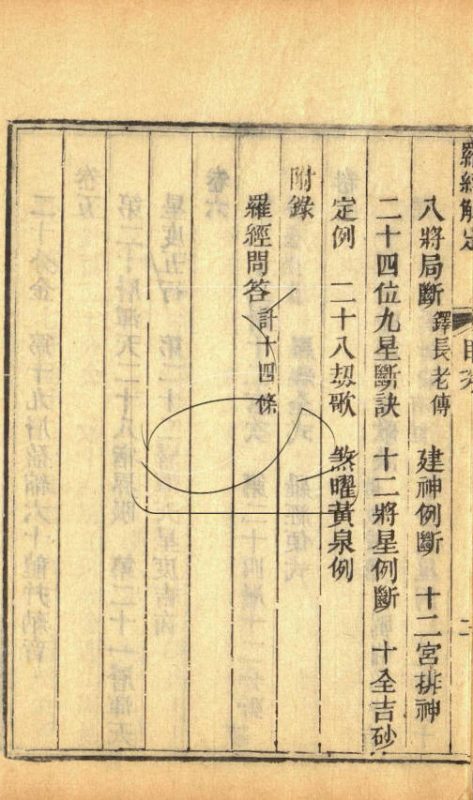 羅經解定 目次 二
八將局斷 鐸長老傳 建神例斷 十二宮排神
二十四位九星斷訣 十二將星例斷 十全吉砂
定例 二十八刼歌 煞曜黃泉例
附錄
羅經問答 計十四條